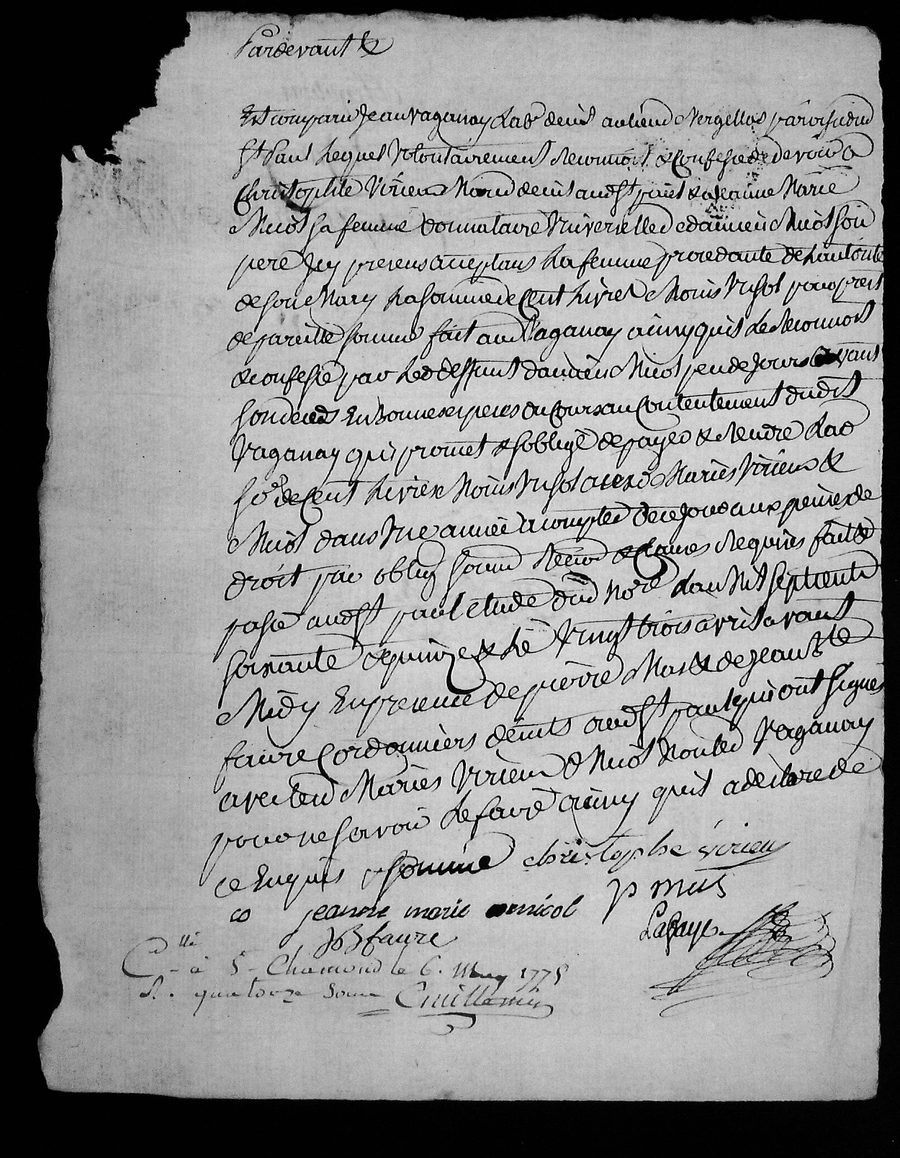 Pardevant &c
Est comparu Jean Vaganay Lab^r demt au lieu de Vergellas paroisse dud
St Paul Lequel Volontairement Reconnoit & confesse de devoir a
Christophle Virieux Mard demt aud St paul & a Jeanne Marie
Nicol sa femme donnataire Universelle de damien Nicol son
pere Icy presens acceptans La femme procedante de Lautorité
de son Mary La somme de Cent Livres Moins Un sol pour prest
de pareille somme fait aud Vaganay ainsy quil Le Reconnoit
& confesse par Led deffunt damien Nicol peu de Jours avant
son deces En bonnes especes du Cours au Contentement dudit
Vaganay qui promet & soblige de payer & Rendre Lad
so^e de Cent Livres Moins Un sol auxd Mariés Virieux &
Nicol dans Une année a compter de ce Jour aux peines de
droit par oblig soum Renon & clauses Requises fait &
passé aud St paul etude dud No^re Lan Mil sept cent
soixante & quinze & Le Vingt trois avril avant
Midy En presence de pierre Mas & de Jean B^te
faure Cordonniers demts aud St paul qui ont signé
avec led Mariés Virieux & Nicol Non led Vaganay
pour ne savoir Le faire ainsy quil a declaré de
ce Enquis & sommé christophe virieu
jeanne marie nicol p mas
JB faure Lafaye
C^llé à St Chamond le 6. May 1775
R. quatorze sous Guillemin